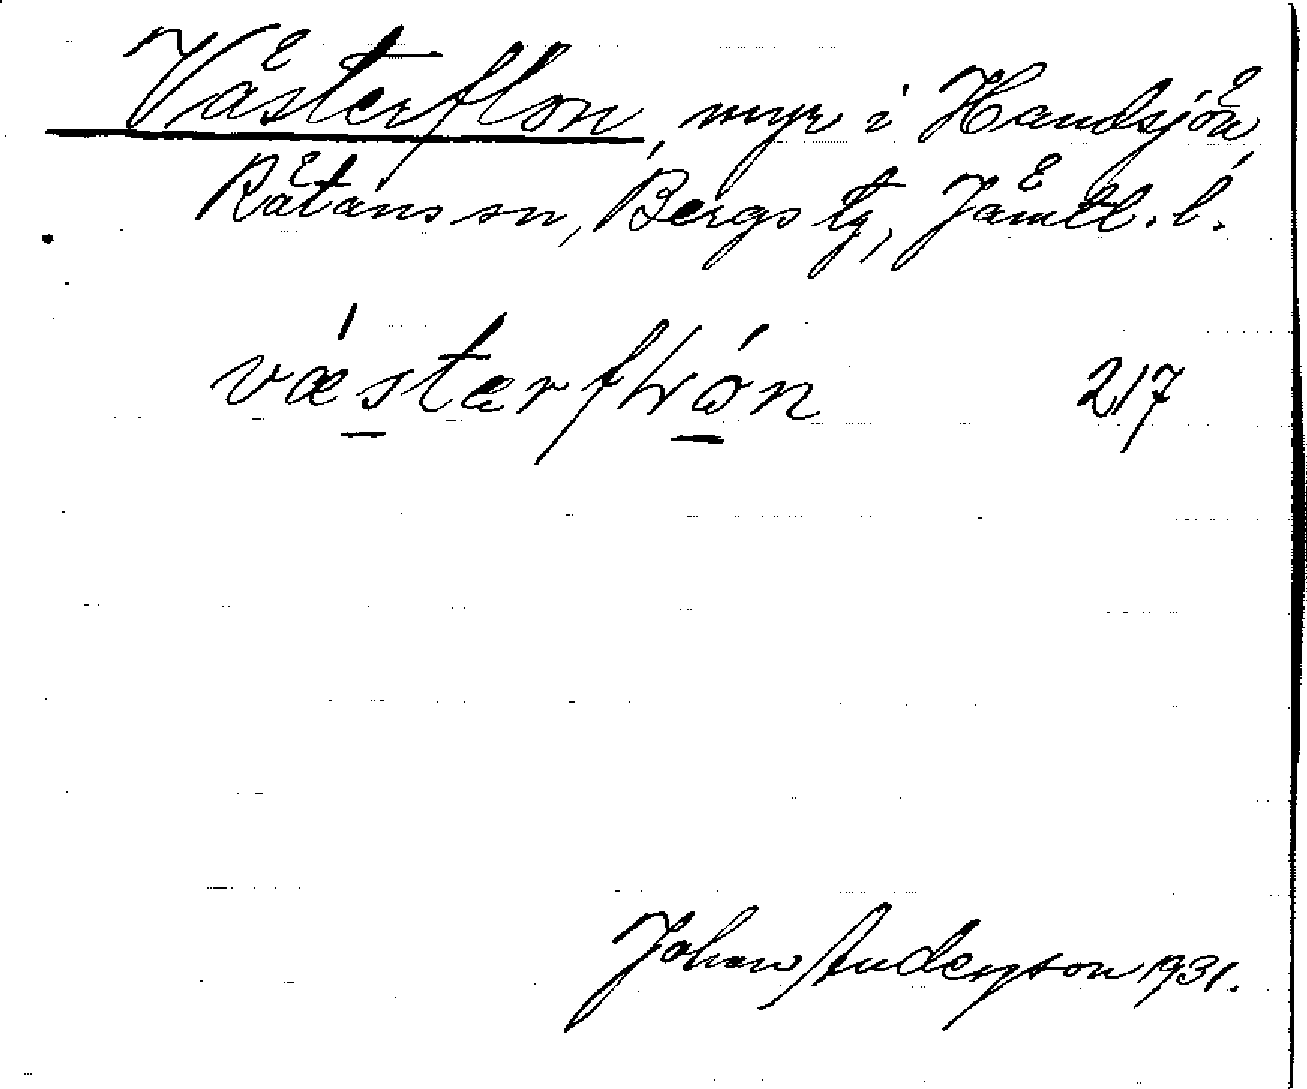 Västerflon, myr i Handsjön,
Rätans sn, Bergs tg, Jämtl. l.
væstærfɫɷ́n 217
Johan Anderson 1931.